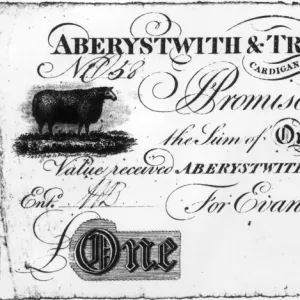 ABERYSTWITH & TR
CARDIGAN
No 58
Promise
the Sum of O
Value received ABERYSTWITH
Ent.
For Evan
£ One